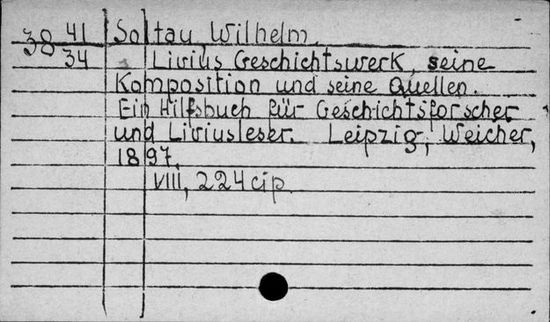 38 41 Soltau Wilhelm.
34 Livius Geschichtswerk, seine
Komposition und seine Quellen.
Ein Hilfsbuch für Geschichtsforscher
und Liviusleser. Leipzig, Weicher,
1897.
VIII, 224 cip.